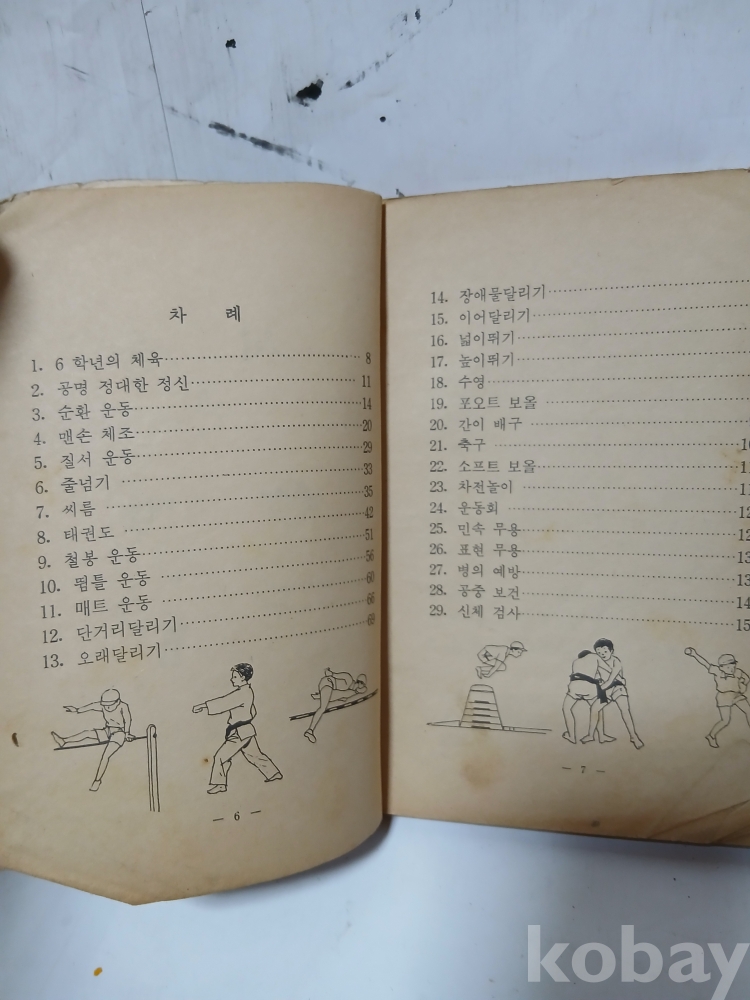 차 례
1. 6 학년의 체육 8
2. 공명 정대한 정신 11
3. 순환 운동 14
4. 맨손 체조 20
5. 질서 운동 29
6. 줄넘기 33
7. 씨름 35
8. 태권도 42
9. 철봉 운동 51
10. 뜀틀 운동 56
11. 매트 운동 60
12. 단거리달리기 66
13. 오래달리기 69
— 6 —
14. 장애물달리기
15. 이어달리기
16. 넓이뛰기
17. 높이뛰기
18. 수영
19. 포오트 보올
20. 간이 배구
21. 축구
22. 소프트 보올
23. 차전놀이
24. 운동회
25. 민속 무용
26. 표현 무용
27. 병의 예방
28. 공중 보건
29. 신체 검사
— 7 —
kobay